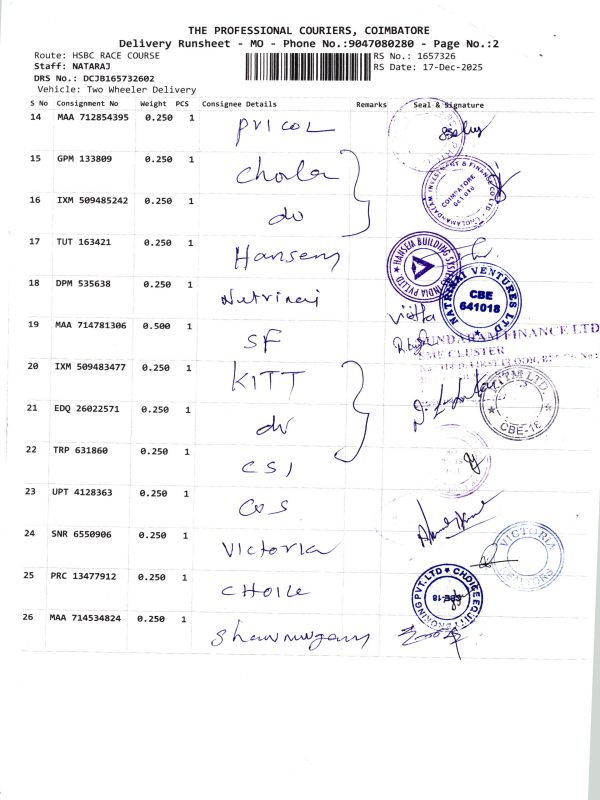 THE PROFESSIONAL COURIERS, COIMBATORE
Delivery Runsheet - MO - Phone No.:9047080280 - Page No.:2
Route: HSBC RACE COURSE
RS No.: 1657326
Staff: NATARAJ
RS Date: 17-Dec-2025
DRS No.: DCJB165732602
Vehicle: Two Wheeler Delivery
S No Consignment No Weight PCS Consignee Details Remarks Seal & Signature
14 MAA 712854395 0.250 1 PRICOL
15 GPM 133809 0.250 1 Chola
16 IXM 509485242 0.250 1 do
CHOLAMANDALAM INVESTMENT & FINANCE CO LTD
COIMBATORE
641 018
17 TUT 163421 0.250 1 Hansem
HANSEM BUILDING SYSTEMS INDIA PVT LTD
18 DPM 535638 0.250 1 Nutrinai
NATRINAI VENTURES LTD
CBE
641018
19 MAA 714781306 0.500 1 SF
SUNDARAM FINANCE LTD
CLUSTER
20 IXM 509483477 0.250 1 KITT
21 EDQ 26022571 0.250 1 do
CBE-18
22 TRP 631860 0.250 1 CSI
23 UPT 4128363 0.250 1
24 SNR 6550906 0.250 1 Victoria
VICTORIA
REALTORS
25 PRC 13477912 0.250 1 CHOICE
CHOICE EQUITY BROKING PVT.LTD
CBE-18
26 MAA 714534824 0.250 1 Shanmugam